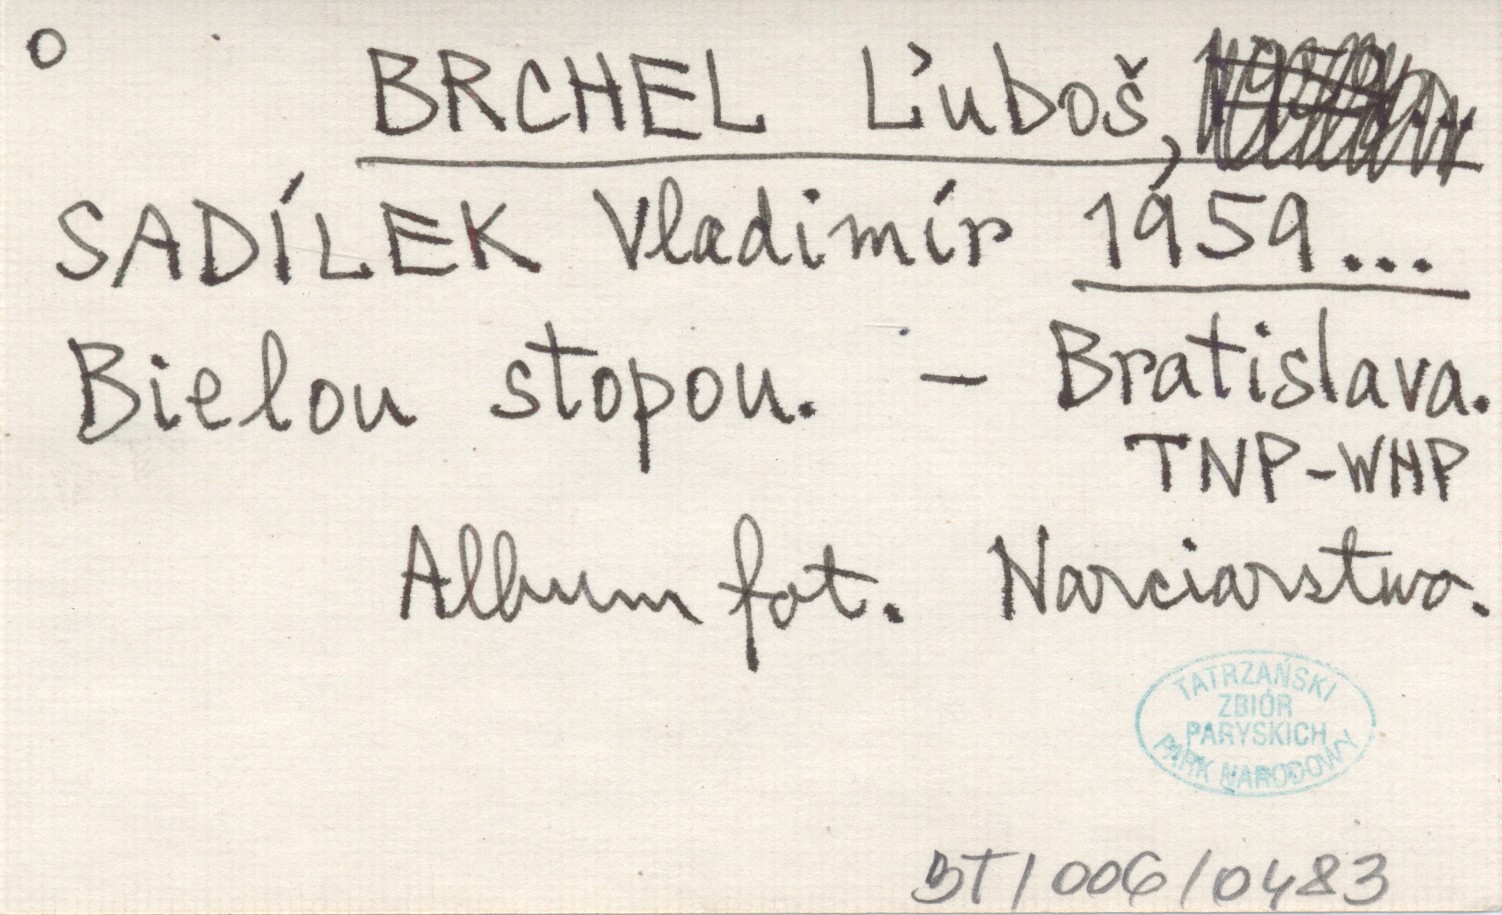 o BRCHEL Ľuboš,
SADÍLEK Vladimír 1959...
Bielou stopou. – Bratislava.
TNP-WHP
Album fot. Narciarstwo.
TATRZAŃSKI
ZBIÓR
PARYSKICH
PARK NARODOWY
BT/006/0483